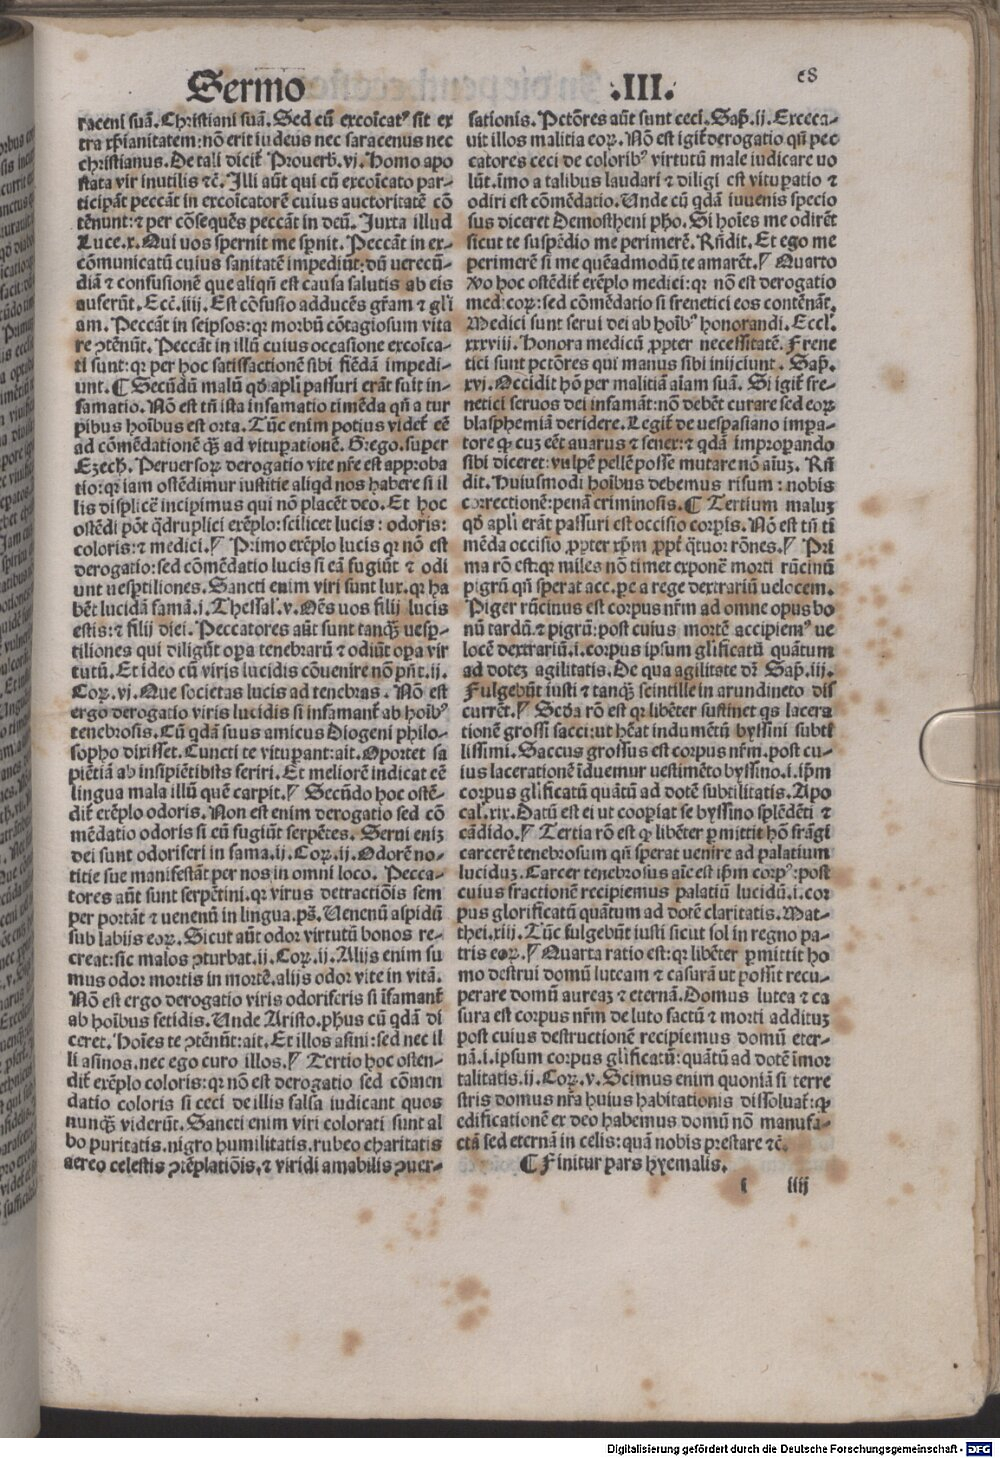 Sermo .III. 68
raceni suã. Christiani suã. Sed cũ excoĩcatꝰ sit ex
tra xp̃ianitatem: nõ erit iudeus nec saracenus nec
christianus. De tali dicit̃ Prouerb̃. vj. Homo apo
stata vir inutilis ⁊c̃. Illi aũt qui cũ excoĩcato par-
ticipãt peccãt in excoĩcatorẽ cuius auctoritatẽ cõ
tẽnunt: ⁊ per cõsequẽs peccãt in deũ. Juxta illud
Luce. x. Qui uos spernit me sp̃nit. Peccãt in ex-
cõmunicatũ cuius sanitatẽ impediũt: dũ uerecũ-
diã ⁊ confusionẽ que aliqñ est causa salutis ab eis
auferũt. Ecc̃. iiij. Est cõfusio adducẽs gr̃am ⁊ gl̃i
am. Peccãt in seipsos: qꝛ morbũ cõtagiosum vita
re ꝯtẽnũt. Peccãt in illũ cuius occasione excoĩca-
ti sunt: qꝛ per hoc satisfactionẽ sibi fiẽdã impedi-
unt. ¶ Secũdũ malũ qd̃ apl̃i passuri erãt fuit in-
famatio. Nõ est tñ ista infamatio timẽda qñ a tur
pibus hoĩbus est orta. Tũc enim potius videt̃ eẽ
ad cõmẽdationẽ q̃ꝫ ad vituꝑationẽ. Grego. super
Ezech. Peruersoꝝ derogatio vite nr̃e est approba
tio: qꝛ iam ostẽdimur iustitie aliqd nos habere si il
lis displicẽ incipimus qui nõ placẽt deo. Et hoc
ostẽdi põt q̃druplici exẽplo: scilicet lucis: odoris:
coloris: ⁊ medici. ⸿ Primo exẽplo lucis qꝛ nõ est
derogatio: sed cõmẽdatio lucis si eã fugiũt ⁊ odi
unt uesꝑtiliones. Sancti enim viri sunt lux. qꝛ ha
bẽt lucidã famã. i. Thessal̃. v. Oẽs uos filij lucis
estis: ⁊ filij diei. Peccatores aũt sunt tanq̃ꝫ uesꝑ-
tiliones qui diligũt oꝑa tenebrarũ ⁊ odiũt oꝑa vir
tutũ. Et ideo cũ viris lucidis cõuenire nõ pñt. ij.
Coꝝ. vj. Que societas lucis ad tenebras. Nõ est
ergo derogatio viris lucidis si infamant̃ ab hoĩbꝰ
tenebrosis. Cũ q̃dã suus amicus Diogeni philo-
sopho dixisset. Cuncti te vituꝑant: ait. Oportet sa
piẽtiã ab insipiẽtibꝰ feriri. Et meliorẽ indicat eẽ
lingua mala illũ quẽ carpit. ⸿ Secũdo hoc ostẽ-
dit̃ exẽplo odoris. Non est enim derogatio sed cõ
mẽdatio odoris si eũ fugiũt serpẽtes. Serui enim
dei sunt odoriferi in fama. ij. Coꝝ. ij. Odorẽ no-
titie sue manifestãt per nos in omni loco. Pecca-
tores aũt sunt serpẽtini. qꝛ virus detractiõis sem
per portãt ⁊ uenenũ in lingua. ps̃. Uenenũ aspidũ
sub labijs eoꝝ. Sicut aũt odor virtutũ bonos re-
creat: sic malos ꝯturbat. ij. Coꝝ. ij. Alijs enim su
mus odor mortis in mortẽ. alijs odor vite in vitã.
Nõ est ergo derogatio viris odoriferis si ĩfamant̃
ab hoĩbus fetidis. Unde Aristo. ph̃us cũ q̃dã di
ceret. Hoĩes te ꝯtẽnũt: ait. Et illos asini: sed nec il
li asinos. nec ego curo illos. ⸿ Tertio hoc osten-
dit̃ exẽplo coloris: qꝛ nõ est derogatio sed cõmen
datio coloris si ceci de illis falsa iudicant quos
nunq̃ꝫ viderũt. Sancti enim viri colorati sunt al
bo puritatis. nigro humilitatis. rubeo charitatis
aereo celestis ꝯtẽplatiõis. ⁊ viridi amabilis ꝯuer-
sationis. Pctõres aũt sunt ceci. Sap̃. ij. Exceca-
uit illos malitia eoꝝ. Nõ est igit̃ derogatio qñ pec
catores ceci de coloribꝰ virtutũ male iudicare uo
lũt. ĩmo a talibus laudari ⁊ diligi est vituꝑatio ⁊
odiri est cõmẽdatio. Unde cũ q̃dã iuuenis specio
sus diceret Demostheni ph̃o. Si hoĩes me odirẽt
sicut te suspẽdio me perimerẽ. Rñdit. Et ego me
perimerẽ si me quẽadmodũ te amarẽt. ⸿ Quarto
ṽo hoc ostẽdit̃ exẽplo medici: qꝛ nõ est derogatio
medicoꝝ: sed cõmẽdatio si frenetici eos contẽnãt.
Medici sunt serui dei ab hoĩbꝰ honorandi. Eccl̃.
xxxviij. Honora medicũ ꝓpter necessitatẽ. Frene
tici sunt pctõres qui manus sibi inijciunt. Sap̃.
xvj. Occidit hõ per malitiã aĩam suã. Si igit̃ fre-
netici seruos dei infamãt: nõ debẽt curare sed eoꝝ
blasphemiã deridere. Legit̃ de uespasiano imꝑa-
tore ꝙ cuꝫ eẽt auarus ⁊ senex: ⁊ q̃dã improꝑando
sibi diceret: vulpẽ pellẽ posse mutare nõ aĩuꝫ. Rñ
dit. Huiusmodi hoĩbus debemus risum: nobis
correctionẽ: penã criminosis. ¶ Tertium maluꝫ
qd̃ apl̃i erãt passuri est occisio corpis. Nõ est tñ ti
mẽda occisio ꝓpter xp̃m ꝓpt̃ q̃tuor rõnes. ⸿ Pri
ma rõ est: qꝛ miles nõ timet exponẽ morti rũcinũ
pigrũ qñ sperat accipe a rege dextrariũ velocem.
Piger rũcinus est corpus nr̃m ad omne opus bo
nũ tardũ ⁊ pigrũ: post cuius mortẽ accipiemꝰ ue
locẽ dextrariũ. i. corpus ipsum gl̃ificatũ quãtum
ad doteꝫ agilitatis. De qua agilitate dr̃ Sap̃. iij.
Fulgebũt iusti ⁊ tanq̃ꝫ scintille in arundineto dis
currẽt. ⸿ Scd̃a rõ est qꝛ libẽter sustinet qs lacera
tionẽ grossi sacci: ut hẽat indumẽtũ byssini subti
lissimi. Saccus grossus est corpus nr̃m. post cu-
ius lacerationẽ ĩduemur uestimẽto byssino. i. ip̃m
corpus gl̃ificatũ quãtũ ad dotẽ subtilitatis. Apo
cal̃. xix. Datũ est ei ut cooꝑiat se byssino splẽdẽti ⁊
cãdido. ⸿ Tertia rõ est ꝙ libẽter ꝑmittit hõ frãgi
carcerẽ tenebrosum qñ sperat uenire ad palatium
luciduꝫ. Carcer tenebrosus aĩe est ip̃m corpꝰ: post
cuius fractionẽ recipiemus palatiũ lucidũ. i. cor
pus glorificatũ quãtum ad dotẽ claritatis. Mat-
thei. xiij. Tũc fulgebũt iusti sicut sol in regno pa-
tris eoꝝ. ⸿ Quarta ratio est: qꝛ libẽter ꝑmittit ho
mo destrui domũ luteam ⁊ casurã ut possit recu-
perare domũ aureaꝫ ⁊ eternã. Domus lutea ⁊ ca
sura est corpus nr̃m de luto factũ ⁊ morti addituꝫ
post cuius destructionẽ recipiemus domũ eter-
nã. i. ipsum corpus gl̃ificatũ: quãtũ ad dotẽ ĩmor
talitatis. ij. Coꝝ. v. Scimus enim quoniã si terre
stris domus nr̃a huius habitationis dissoluat̃: ꝙ
edificationẽ ex deo habemus domũ nõ manufa-
ctã sed eternã in celis: quã nobis prestare ⁊c̃.
¶ Finitur pars hyemalis.
l iiij
Digitalisierung gefördert durch die Deutsche Forschungsgemeinschaft - DFG